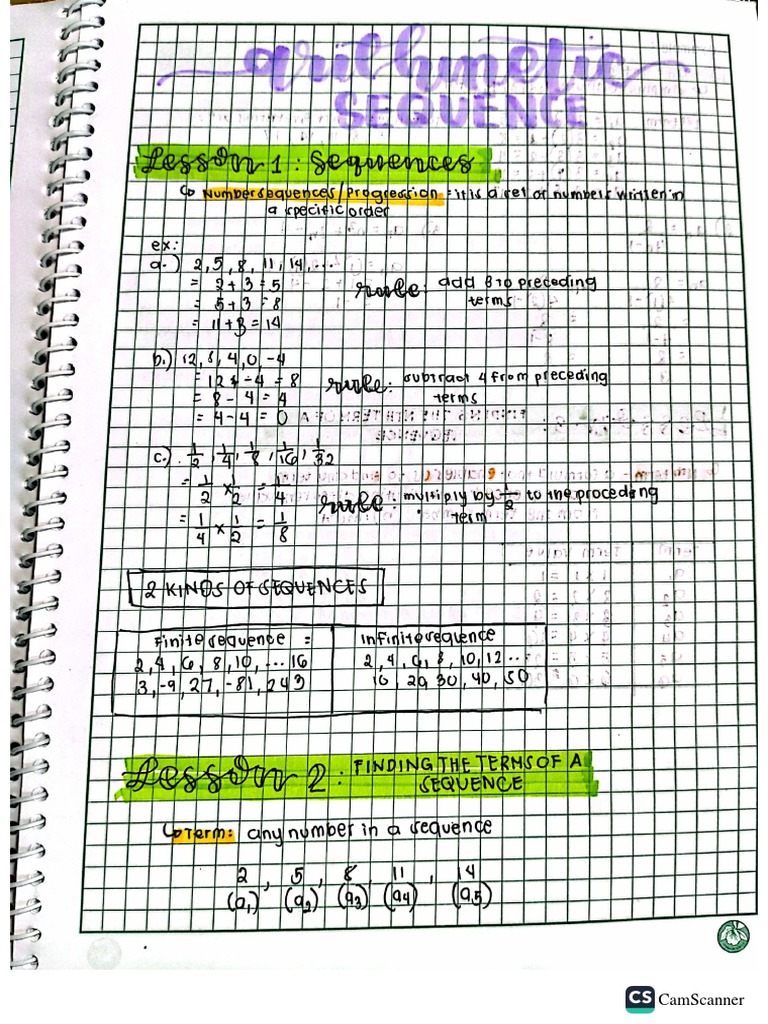 arithmetic
SEQUENCE
Lesson 1: Sequences
Number sequences/Progression = it is a set of numbers written in
a specific order
ex:
a.) 2, 5, 8, 11, 14, ...
= 2 + 3 = 5
= 5 + 3 = 8
= 11 + 3 = 14
rule: add 3 to preceding
terms
b.) 12, 8, 4, 0, -4
= 12 + -4 = 8
= 8 - 4 = 4
= 4 - 4 = 0
rule: subtract 4 from preceding
terms
c.) 1/2, 1/4, 1/8, 1/16, 1/32
= 1/2 x 1/2 = 1/4
= 1/4 x 1/2 = 1/8
rule: multiply by 1/2 to the proceding
term
2 KINDS OF SEQUENCES
Finite sequence =
2, 4, 6, 8, 10, ... 16
3, -9, 27, -81, 243
Infinite sequence
2, 4, 6, 8, 10, 12 ...
10, 20, 30, 40, 50
Lesson 2: FINDING THE TERMS OF A
SEQUENCE
Term: any number in a sequence
2, 5, 8, 11, 14
(a1) (a2) (a3) (a4) (a5)
CS CamScanner